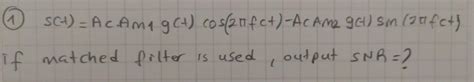 ① s(t) = Ac Am1 g(t) cos(2πfct) - Ac Am2 g(t) sin(2πfct)
if matched filter is used, output SNR = ?